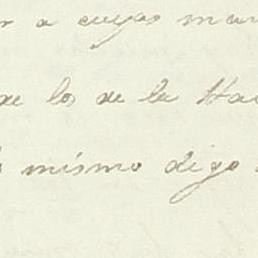 r a cuyas man
de los de la Hac
mismo digo